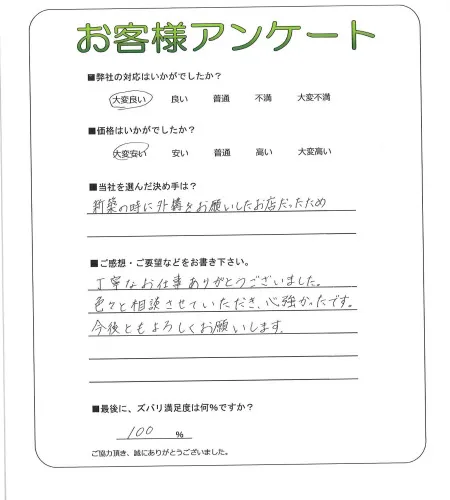 お客様アンケート
■弊社の対応はいかがでしたか？
大変良い 良い 普通 不満 大変不満
■価格はいかがでしたか？
大変安い 安い 普通 高い 大変高い
■当社を選んだ決め手は？
新築の時に外構をお願いしたお店だったため
■ご感想・ご要望などをお書き下さい。
丁寧なお仕事ありがとうございました。
色々と相談させていただき、心強かったです。
今後ともよろしくお願いします。
■最後に、ズバリ満足度は何％ですか？
100 %
ご協力頂き、誠にありがとうございました。